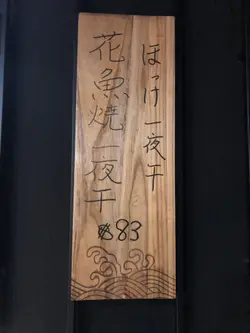 ほっけ一夜干
花魚焼一夜干
$83